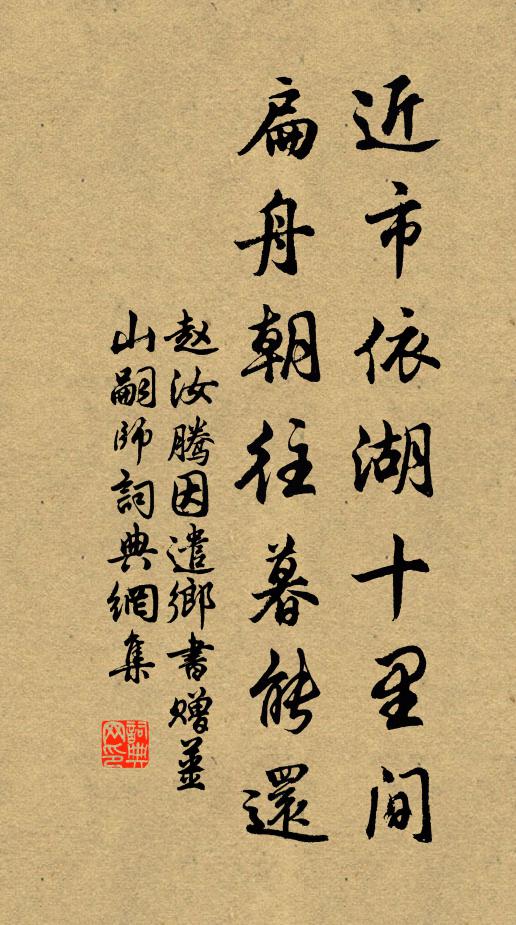 近市依湖十里间
扁舟朝往暮能還
赵汝騰因遣鄉書赠薑
山嗣师詞典網集
詞典网印